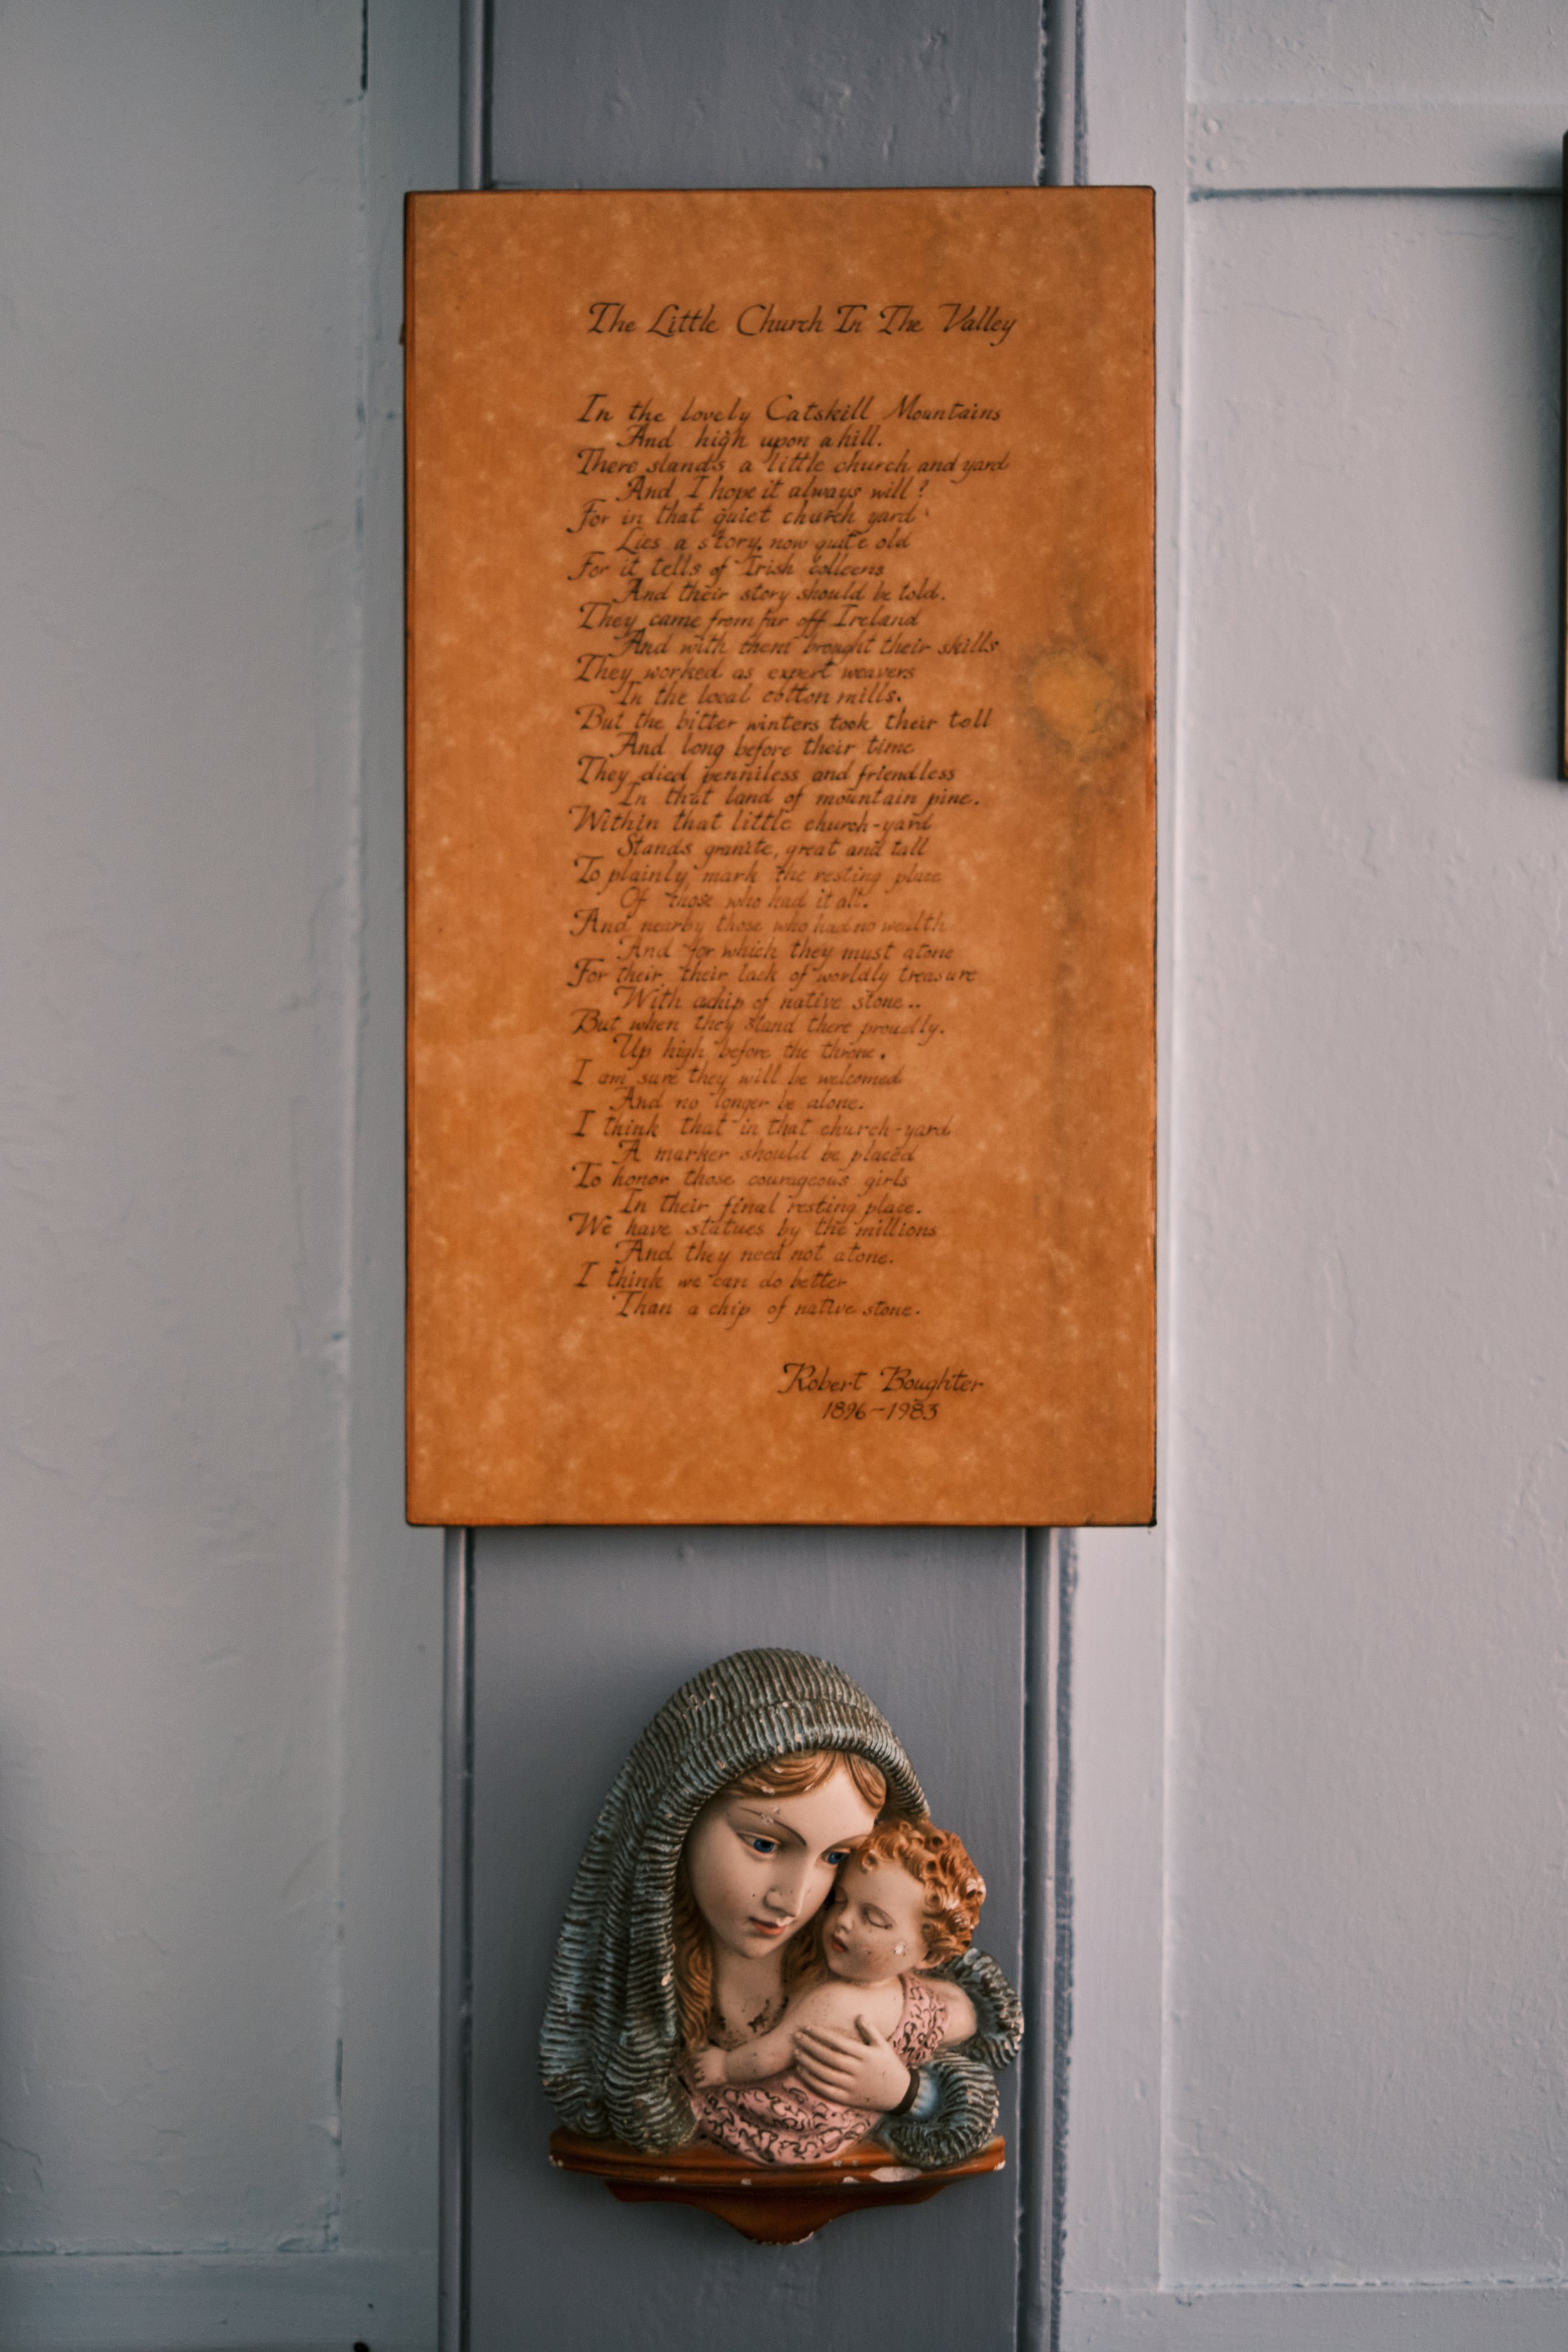 The Little Church In The Valley
In the lovely Catskill Mountains
And high upon a hill.
There stands a little church and yard
And I hope it always will?
For in that quiet church yard
Lies a story, now quite old
For it tells of Irish colleens
And their story should be told.
They came from far off Ireland
And with them brought their skills
They worked as expert weavers
In the local cotton mills.
But the bitter winters took their toll
And long before their time
They died penniless and friendless
In that land of mountain pine.
Within that little church-yard
Stands granite, great and tall
To plainly mark the resting place
Of those who had it all.
And nearby those who had no wealth
And for which they must atone
For their, their lack of worldly treasure
With a chip of native stone..
But when they stand there proudly.
Up high before the throne.
I am sure they will be welcomed
And no longer be alone.
I think that in that church-yard
A marker should be placed
To honor those courageous girls
In their final resting place.
We have statues by the millions
And they need not atone.
I think we can do better
Than a chip of native stone.
Robert Boughter
1896-1983